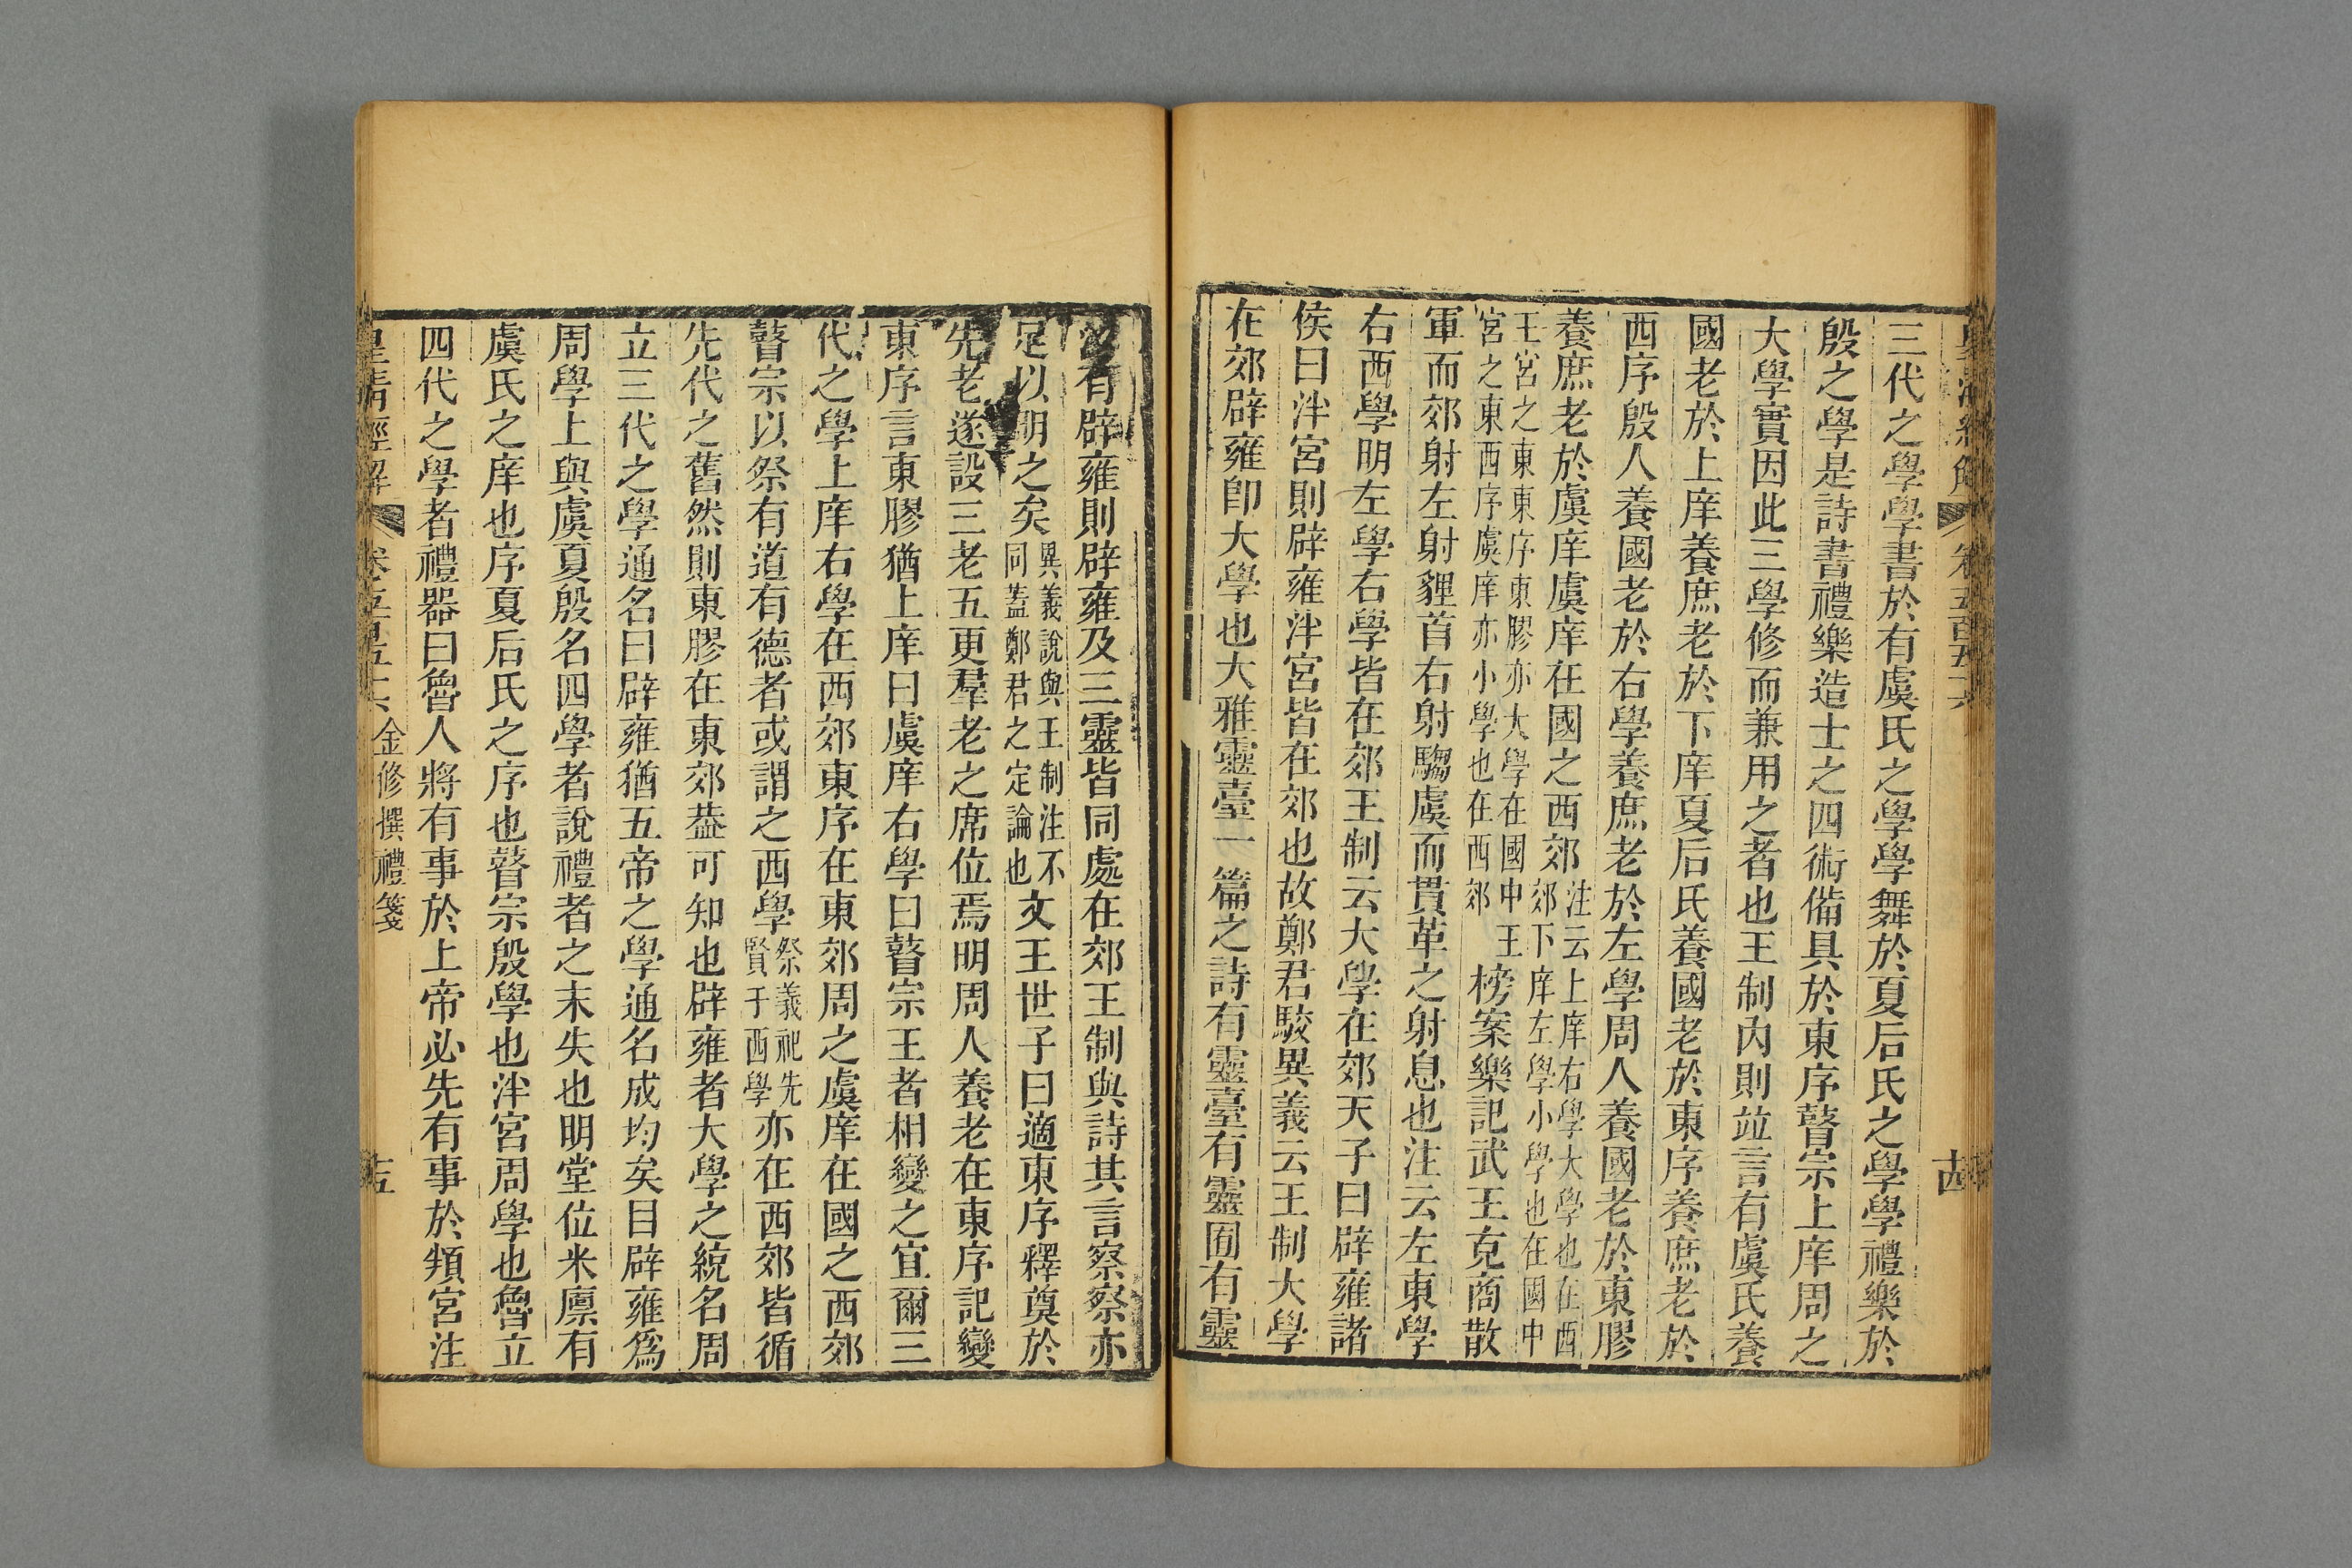 皇清經解 卷五百五十六 十四
三代之學學書於有虞氏之學學舞於夏后氏之學學禮樂於
殷之學是詩書禮樂造士之四術備具於東序瞽宗上庠周之
大學實因此三學修而兼用之者也王制內則竝言有虞氏養
國老於上庠養庶老於下庠夏后氏養國老於東序養庶老於
西序殷人養國老於右學養庶老於左學周人養國老於東膠
養庶老於虞庠虞庠在國之西郊
注云上庠右學大學也在西
郊下庠左學小學也在國中
王宮之東東序東膠亦大學在國中王
宮之東西序虞庠亦小學也在西郊
榜案樂記武王克商散
軍而郊射左射貍首右射騶虞而貫革之射息也注云左東學
右西學明左學右學皆在郊王制云大學在郊天子曰辟雍諸
侯曰泮宮則辟雍泮宮皆在郊也故鄭君駮異義云王制大學
在郊辟雍即大學也大雅靈臺一篇之詩有靈臺有靈囿有靈
有辟雍則辟雍及三靈皆同處在郊王制與詩其言察察亦
足以明之矣
異義說與王制注不
同葢鄭君之定論也
文王世子曰適東序釋奠於
先老遂設三老五更羣老之席位焉明周人養老在東序記變
東序言東膠猶上庠曰虞庠右學曰瞽宗王者相變之宜爾三
代之學上庠右學在西郊東序在東郊周之虞庠在國之西郊
瞽宗以祭有道有德者或謂之西學
祭義祀先
賢于西學
亦在西郊皆循
先代之舊然則東膠在東郊葢可知也辟雍者大學之統名周
立三代之學通名曰辟雍猶五帝之學通名成均矣目辟雍爲
周學上與虞夏殷名四學者說禮者之末失也明堂位米廪有
虞氏之庠也序夏后氏之序也瞽宗殷學也泮宮周學也魯立
四代之學者禮器曰魯人將有事於上帝必先有事於頖宮注
皇清經解 卷五百五十六 金修撰禮箋 十五